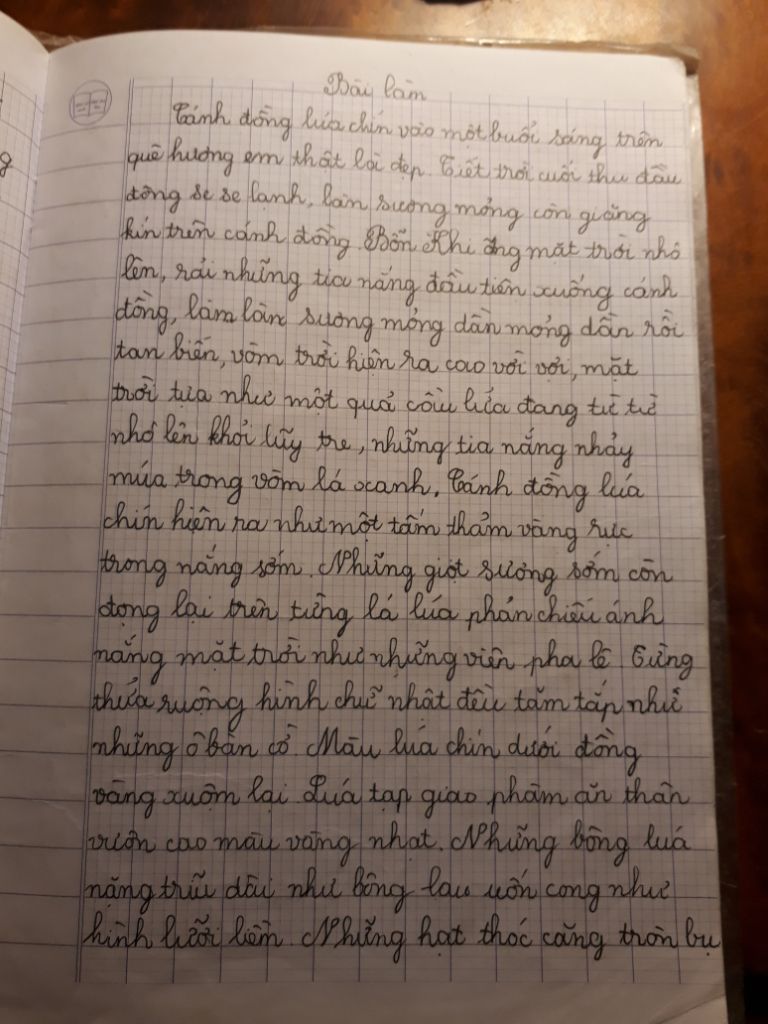 Bài làm
Cánh đồng lúa chín vào một buổi sáng trên
quê hương em thật là đẹp. Tiết trời cuối thu đầu
đông se se lạnh, làn sương mỏng còn giăng
kín trên cánh đồng. Bỗn Khi ông mặt trời nhô
lên, rải những tia nắng đầu tiên xuống cánh
đồng, làm làn sương mỏng dần mỏng dần rồi
tan biến, vòm trời hiện ra cao vời vợi, mặt
trời tựa như một quả cầu lửa đang từ từ
nhô lên khỏi lũy tre, những tia nắng nhảy
múa trong vòm lá xanh. Cánh đồng lúa
chín hiện ra như một tấm thảm vàng rực
trong nắng sớm. Những giọt sương sớm còn
đọng lại trên từng lá lúa phản chiếu ánh
nắng mặt trời như những viên pha lê. Từng
thửa ruộng hình chữ nhật đều tăm tắp như
những ô bàn cờ. Màu lúa chín dưới đồng
vàng xuộm lại. Lúa tạp giao phàm ăn thân
vươn cao màu vàng nhạt. Những bông luá
nặng trĩu dài như bông lau uốn cong như
hình lưỡi liềm. Những hạt thóc căng tròn bụ